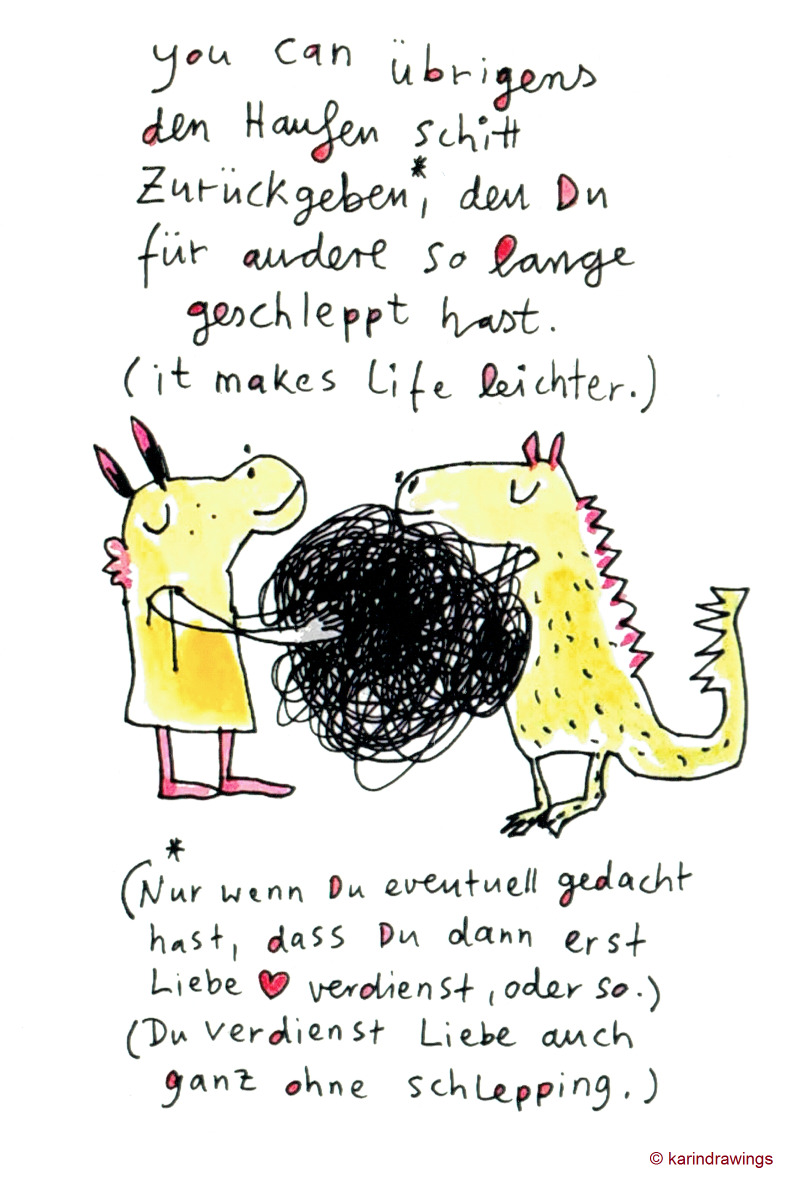 you can übrigens
den Haufen schitt
Zurückgeben*, den Du
für andere so lange
geschleppt hast.
(it makes Life leichter.)
*
(Nur wenn Du eventuell gedacht
hast, dass Du dann erst
Liebe ♥ verdienst, oder so.)
(Du verdienst Liebe auch
ganz ohne schlepping.)
© karindrawings